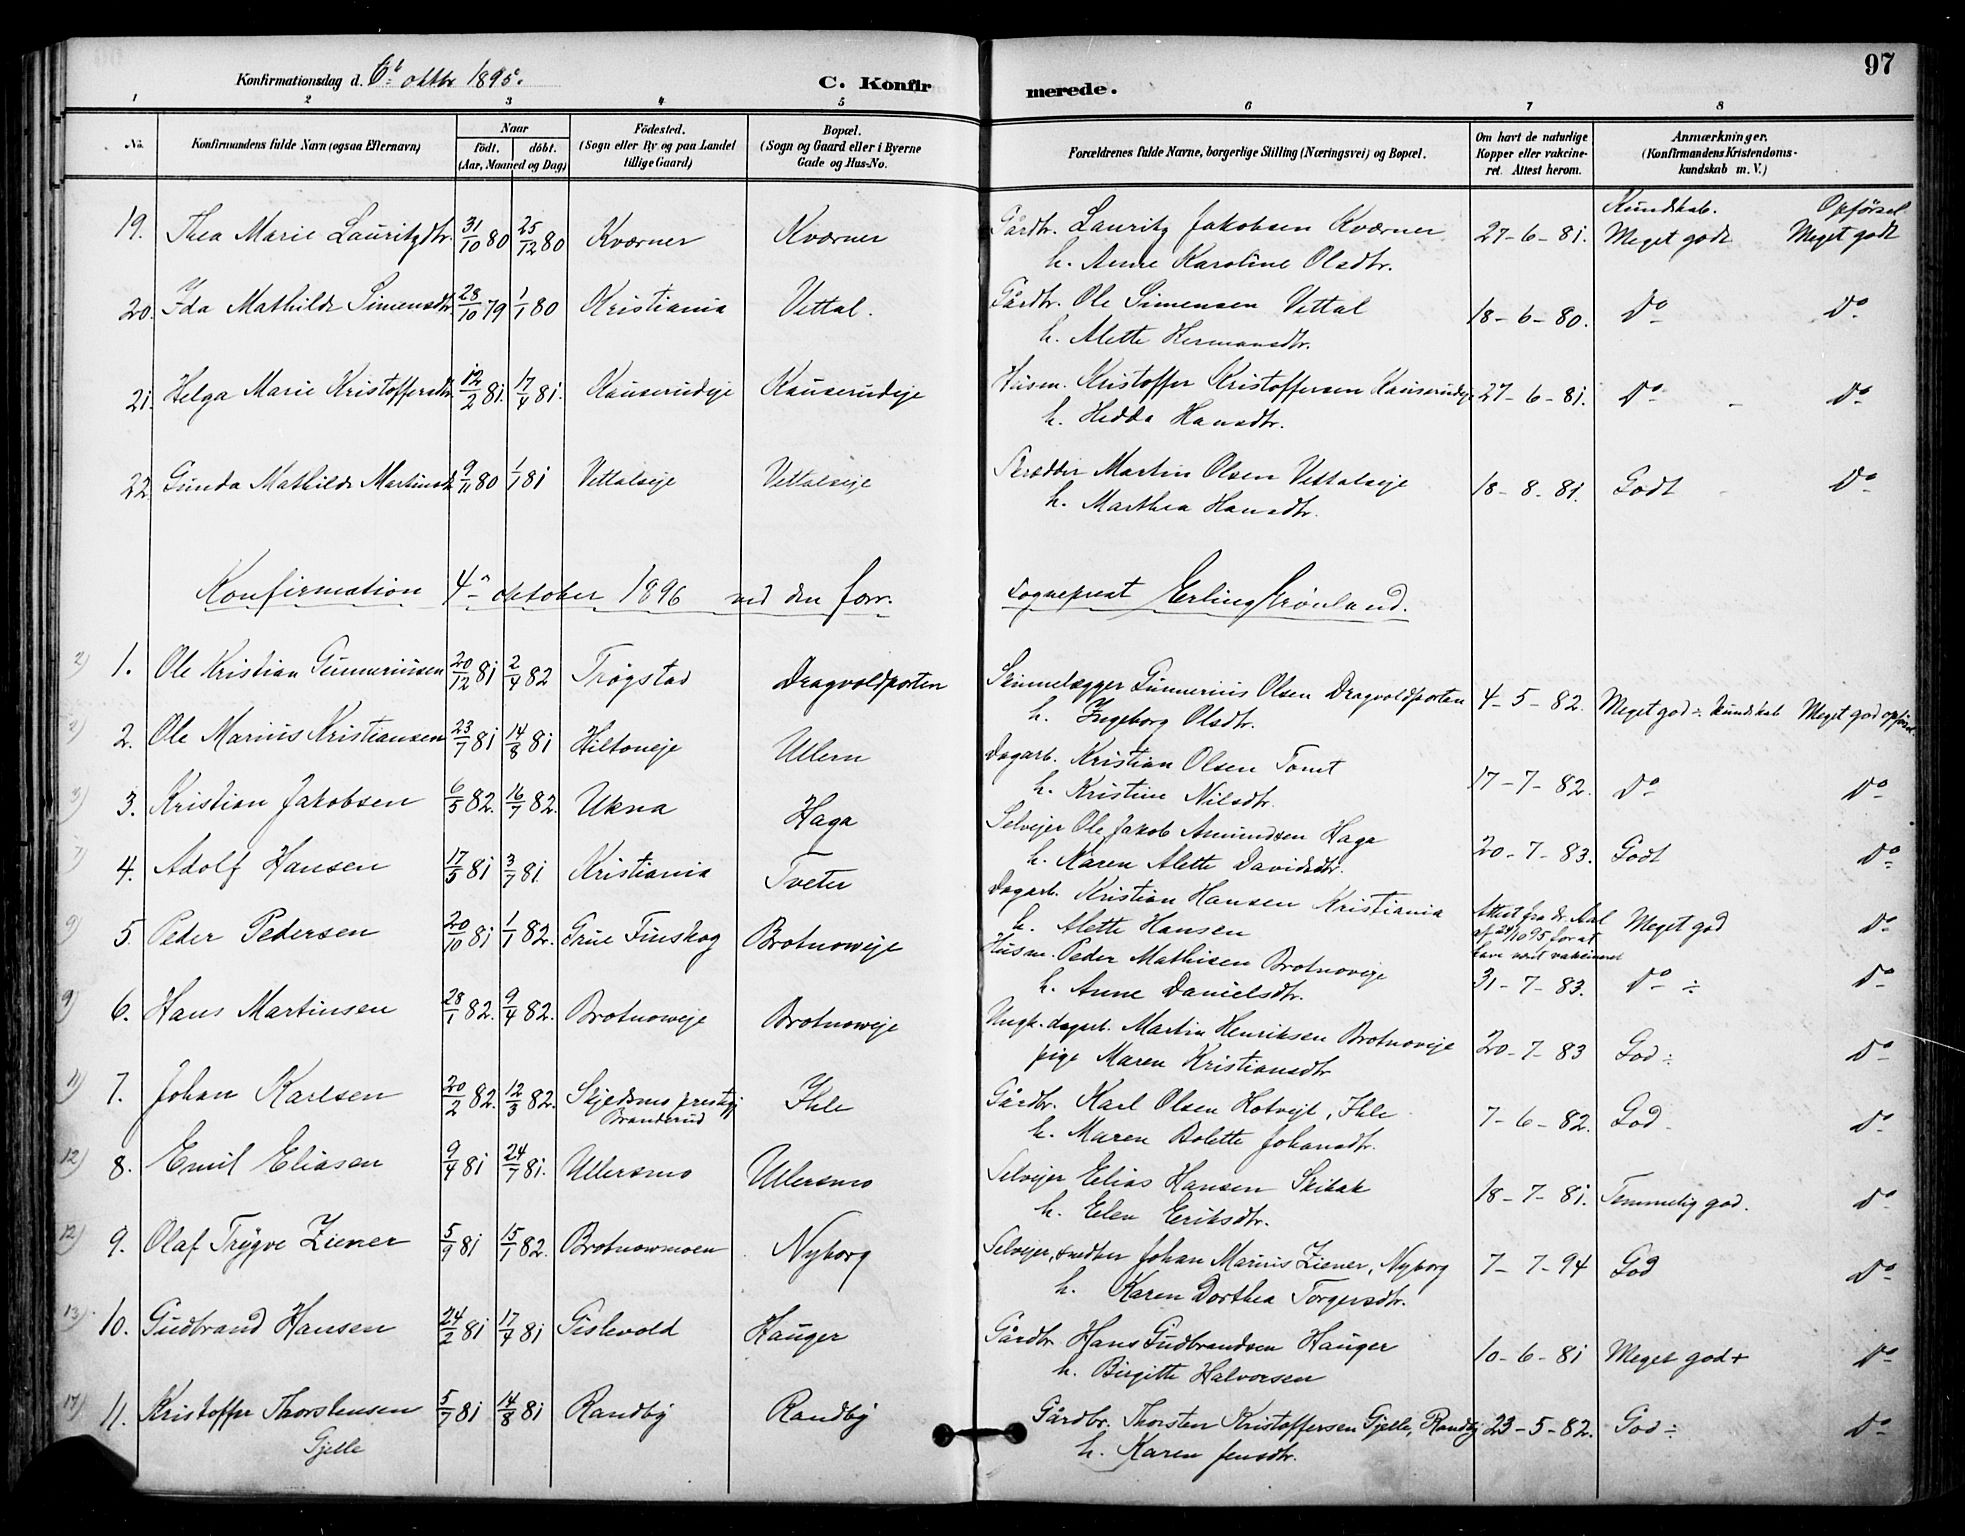 97
Konfirmationsdag d. 6te oktbr 1895.
C. Konfirmerede.
1 2 3 4 5 6 7 8
No. Konfirmandens fulde Navn (ogsaa Efternavn) Naar födt. döbt. (Aar, Maaned og Dag) Födested. (Sogn eller By og paa Landet tillige Gaard) Bopæl. (Sogn og Gaard eller i Byerne Gade og Hus-No. Forældrenes fulde Navne, borgerlige Stilling (Næringsvei) og Bopæl. Om havt de naturlige Kopper eller vakcineret. Attest herom. Anmærkninger. (Konfirmandens Kristendomskundskab m. V.)
Kundskab. Opførsel.
19. Thea Marie Lauritzdtr. 31/10 80 25/12 80 Kværner Kværner Gårdbr. Lauritz Jakobsen Kværner 27-6-81. Meget godt Meget godt
h. Anne Karoline Olsdtr.
20. Ida Mathilde Simensdtr. 28/10 79 1/1 80 Kristiania Vettal. Gårdbr. Ole Simensen Vettal 18-6-80. Do Do
h. Alette Hermansdtr.
21. Helga Marie Kristoffersdtr. 12/2 81. 17/4 81. Kauserudeje Kauserudeje Husm. Kristoffer Kristoffersen Kauserudeje 27-6-81. Do - Do
h. Hedda Hansdtr.
22. Gunda Mathilde Martinsd. 9/11 80 1/1 81 Vettalseje Vettalseje Skrædder Martin Olsen Vettalseje 18-8-81. Godt - Do
h. Marthea Hansdtr.
Konfirmation 4de oktober 1896 ved den forr. sogneprest Erling Grönland.
2) 1. Ole Kristian Gunneriusen 20/12 81 2/4 82 Trøgstad Dragvoldporten Skinnelægger Gunnerius Olsen Dragvoldporten 4-5-82. Meget god ÷ kundskab Meget god opførsel
h. Ingeborg Olsdtr.
2. Ole Marius Kristiansen 23/7 81 14/8 81 Hiltoneje Ullern Dagarb. Kristian Olsen Tomt 17-7-82. Do Do
h. Kristine Nilsdtr.
3) 3. Kristian Jakobsen 6/5 82. 16/7 82. Ukna Haga Selvejer Ole Jakob Amundsen Haga 20-7-83. Godt Do
h. Karen Alette Davidsdtr.
7) 4. Adolf Hansen 17/5 81 3/7 81. Kristiania Tveter Dagarb. Kristian Hansen Kristiania Attest fra dr. Aal af 24/10 95 for at have været vaksineret Meget god Do
h. Alette Hansen
9) 5. Peder Pedersen 20/10 81 1/1 82. Grue Finskog Brotnoweje Husm. Peder Mathisen Brotnoveje 31-7-83. Do ÷ Do
h. Anne Danielsdtr.
9) 6. Hans Martinsen 28/1 82. 9/4 82. Brotnoweje Brotnoweje Ungk. dagarb. Martin Henriksen Brotnoveje 20-7-83 God ÷ Do
pige Maren Kristiansdtr
11) 7. Johan Karlsen 20/2 82. 12/3 82. Skjedsmo prestgj. Branderud Ihle Gårdbr. Karl Olsen Hotvejt, Ihle 7-6-82. God Do
h. Maren Bolette Johansdtr.
12) 8. Emil Eliasen 9/4 81 24/7 81. Ullersmo Ullersmo Selvejer Elias Hansen Skibak 18-7-81. Temmelig god. Do
h. Elen Eriksdtr.
12) 9. Olaf Trygve Ziener 5/9 81 15/1 82. Brotnowmoen Nyborg Selvejer, snedker Johan Marius Ziener, Nyborg 7-7-94 God Do
h. Karen Dorthea Torgersdtr.
13) 10. Gudbrand Hansen 24/2 81 17/4 81 Gislevold Hauger Gårdbr Hans Gudbrandsen Hauger 10-6-81 Meget god + Do
h. Birgitte Halvorsen
17) 11. Kristoffer Thorstensen Gjelle 5/7 81 14/8 81 Randby Randby Gårdbr. Thorsten Kristoffersen Gjelle, Randby 23-5-82. God ÷ Do
h. Karen Jensdtr.